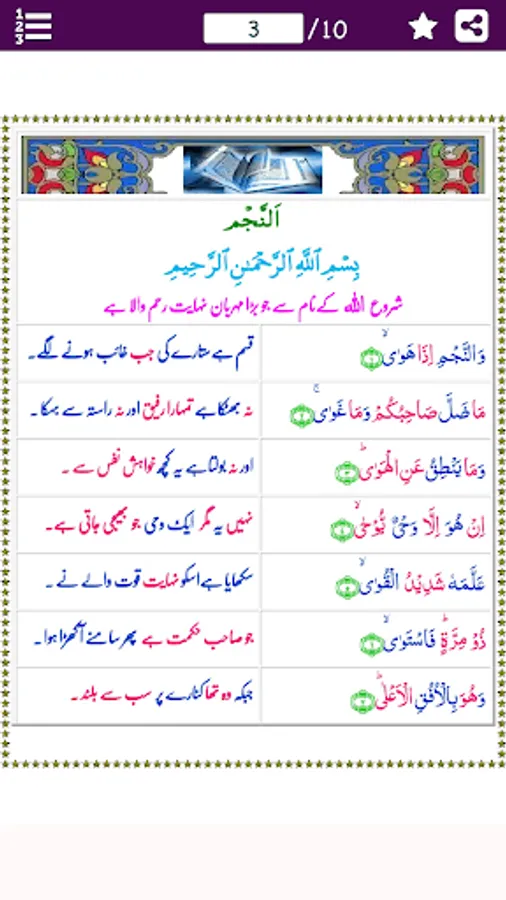 1
2
3
3 /10
اَلنَّجْم
بِسْمِ ٱللَّهِ ٱلرَّحْمَٰنِ ٱلرَّحِيمِ
شروع اللہ کے نام سے جو بڑا مہربان نہایت رحم والا ہے
وَالنَّجْمِ اِذَا هَوٰىۙ ﴿۱﴾
قسم ہے ستارے کی جب غائب ہونے لگے۔
مَا ضَلَّ صَاحِبُكُمْ وَمَا غَوٰىۚ ﴿۲﴾
نہ بھٹکا ہے تمہارا رفیق اور نہ راستہ سے بہکا۔
وَمَا يَنْطِقُ عَنِ الْهَوٰىؕ ﴿۳﴾
اور نہ بولتا ہے یہ کچھ خواہش نفس سے ۔
اِنْ هُوَ اِلَّا وَحْىٌ يُّوْحٰىۙ ﴿۴﴾
نہیں یہ مگر ایک وحی جو بھیجی جاتی ہے۔
عَلَّمَهٗ شَدِيْدُ الْقُوٰىۙ ﴿۵﴾
سکھایا ہے اسکو نہایت قوت والے نے ۔
ذُوْ مِرَّةٍؕ فَاسْتَوٰىۙ ﴿۶﴾
جو صاحب حکمت ہے پھر سامنے آکھڑا ہوا۔
وَهُوَ بِالْاُفُقِ الْاَعْلٰىؕ ﴿۷﴾
جبکہ وہ تھا کنارے پر سب سے بلند۔